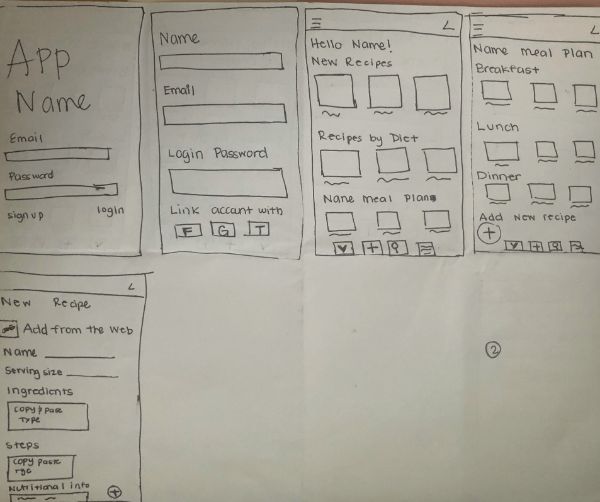 App
Name
Email
Password
sign up login
Name
Email
Login Password
Link accant with
F G T
Hello Name!
New Recipes
Recipes by Diet
Name meal Plans
Name meal Plan
Breakfast
Lunch
Dinner
Add New recipe
New Recipe
Add from the Web
Name
Serving size
Ingredients
Copy & paste
Type
Steps
Copy paste
Nutritional info
2